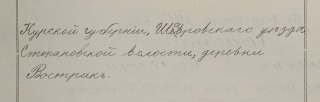 Курской губерніи, Щигровскаго уѣзда
Стакановской волости, деревни